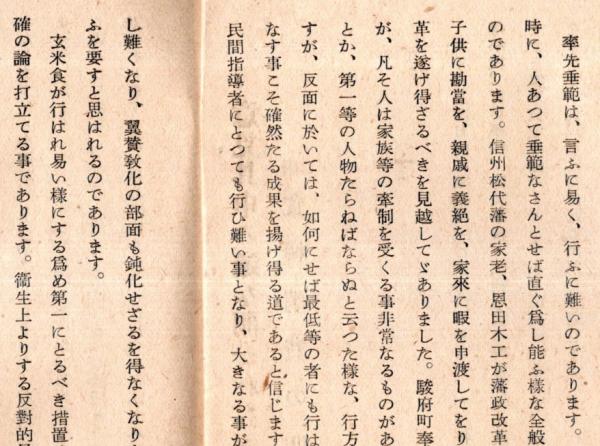 率先垂範は、言ふに易く、行ふに難いのであります。
時に、人あつて垂範なさんとせば直ぐ爲し能ふ樣な全般
のであります。信州松代藩の家老、恩田木工が藩政改革
子供に勘當を、親戚に義絶を、家來に暇を申渡してをり
革を遂げ得ざるべきを見越してゞありました。駿府町奉
が、凡そ人は家族等の牽制を受くる事非常なるものがあ
とか、第一等の人物たらねばならぬと云つた樣な、行方
すが、反面に於いては、如何にせば最低等の者にも行は
なす事こそ確然たる成果を揚げ得る道であると信じます
民間指導者にとつても行ひ難い事となり、大きなる事が
し難くなり、翼賛敎化の部面も鈍化せざるを得なくなり
ふを要すと思はれるのであります。
玄米食が行はれ易い樣にする爲め第一にとるべき措置
確の論を打立てる事であります。衞生上よりする反對的